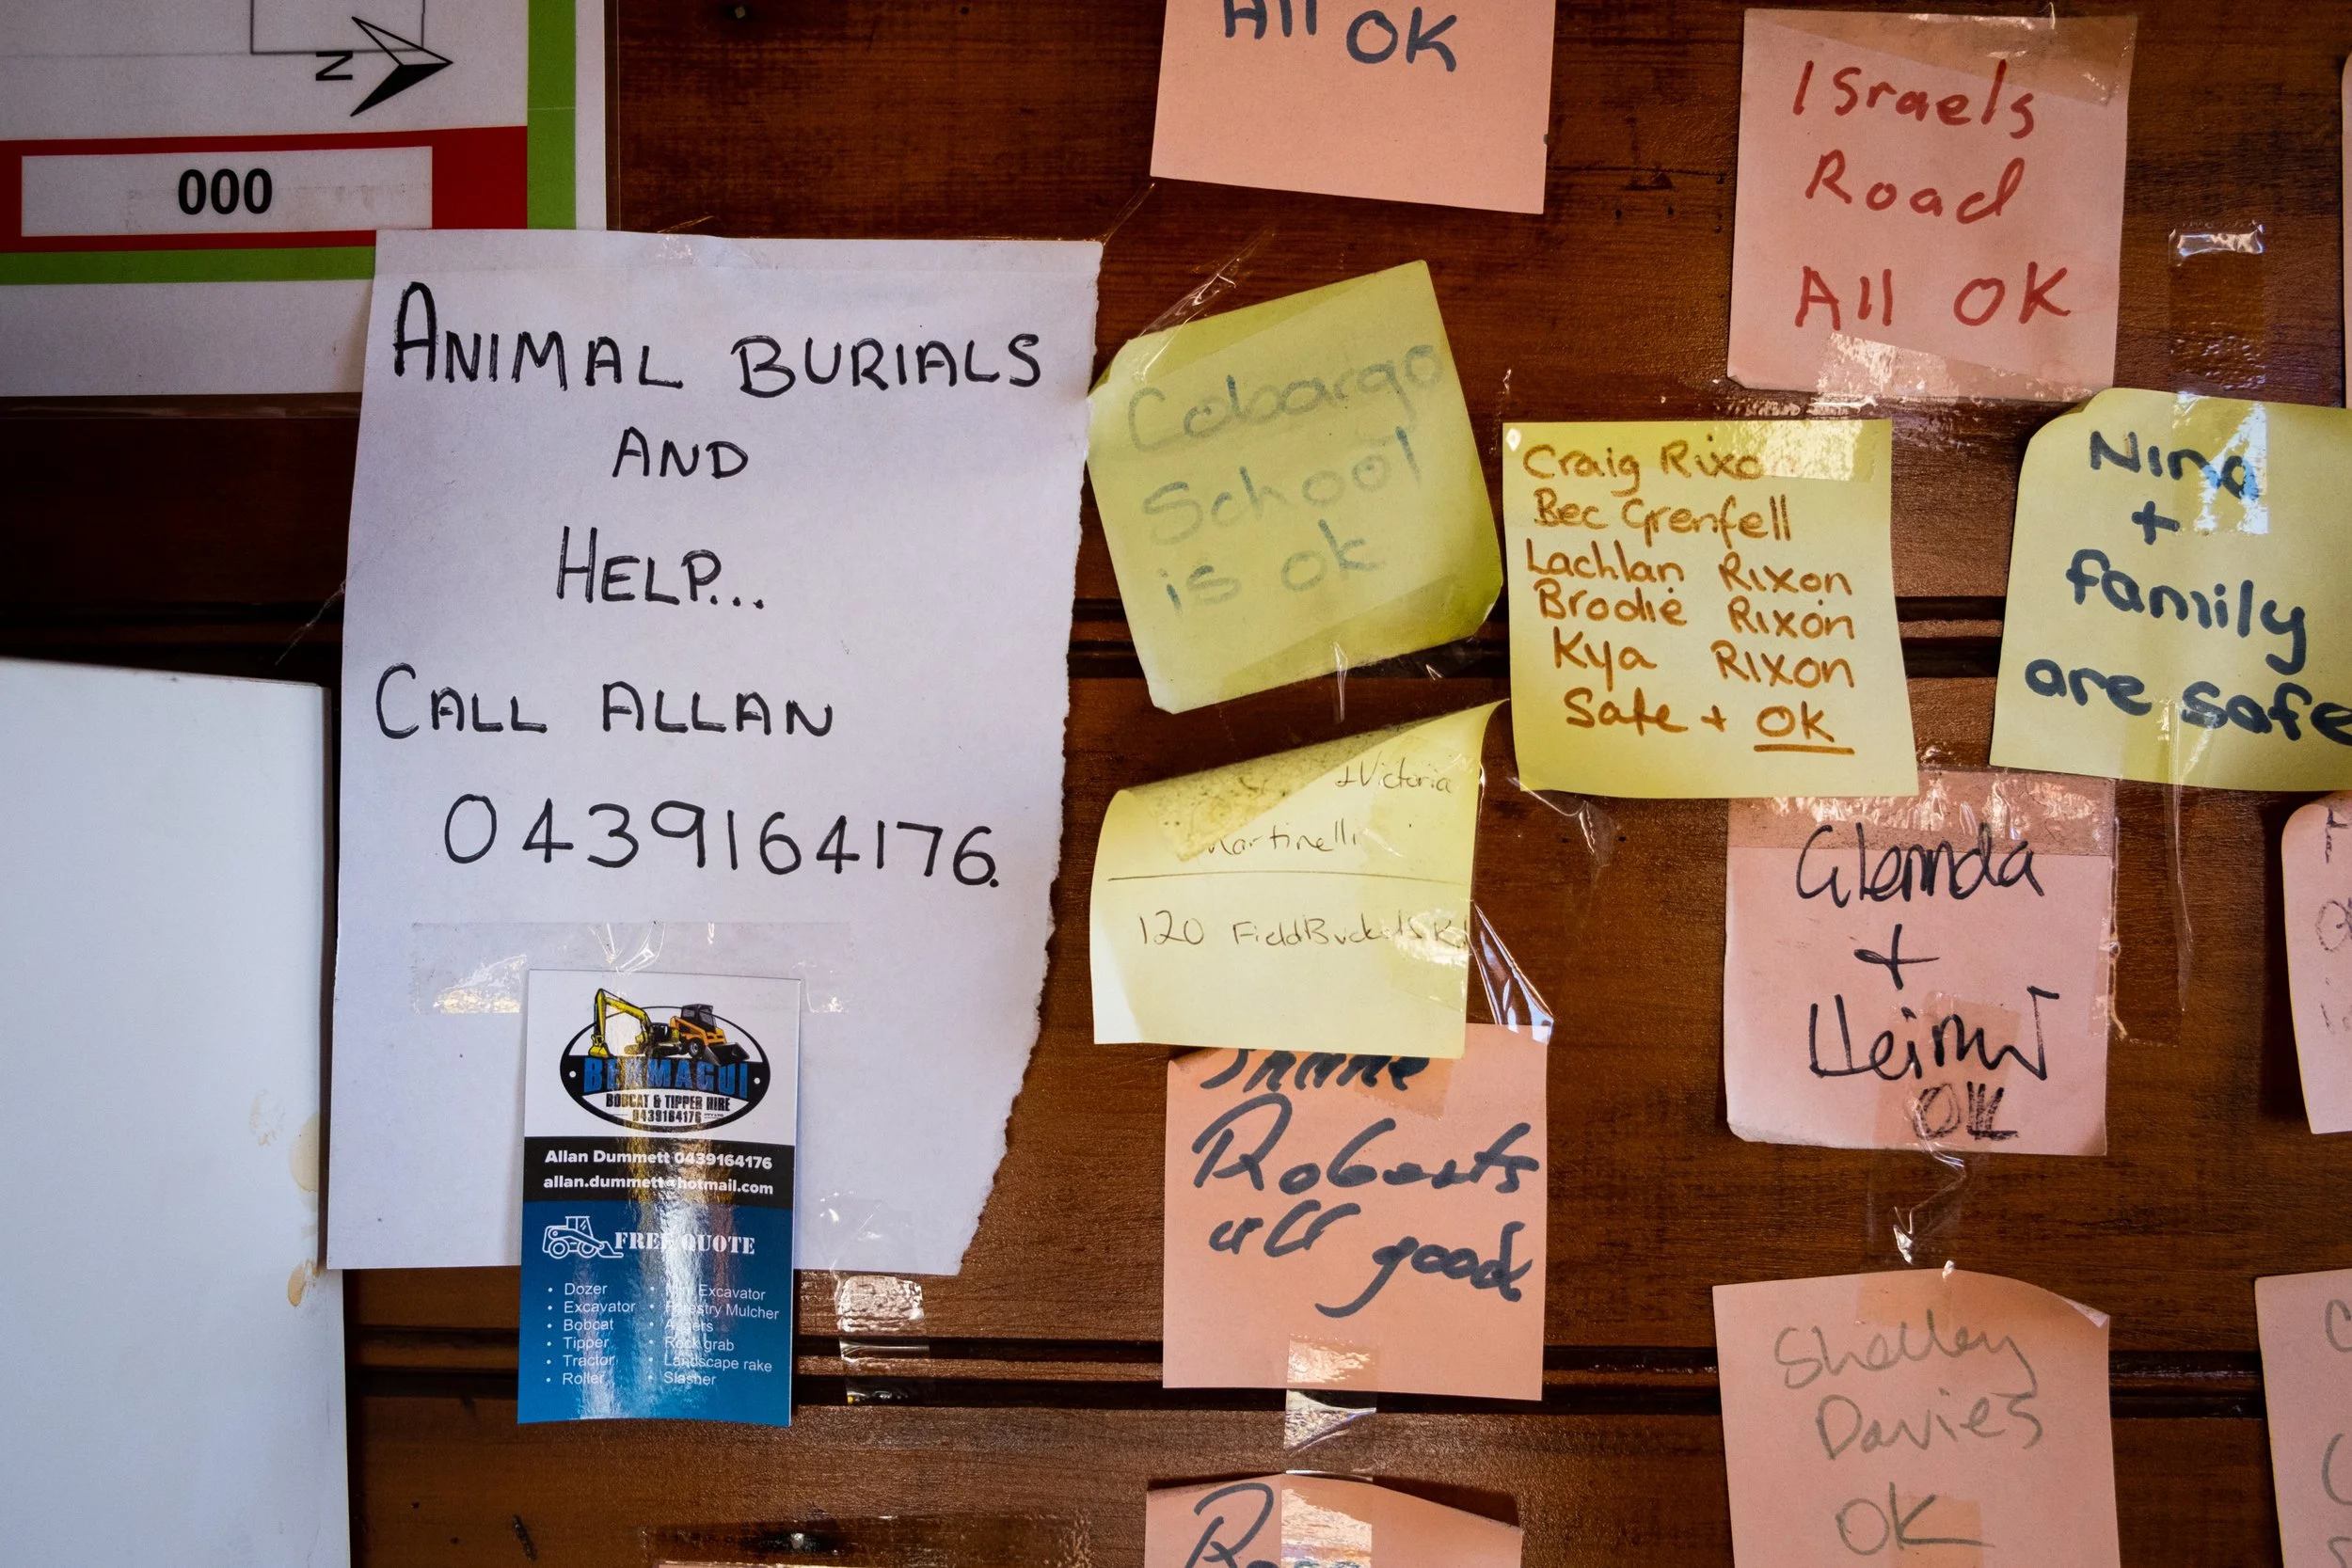 N
000
ANIMAL BURIALS
AND
HELP...
CALL ALLAN
0439164176.
BERMAGUI
BOBCAT & TIPPER HIRE
0439164176
Allan Dummett 0439164176
allan.dummett@hotmail.com
FREE QUOTE
• Dozer
• Excavator
• Bobcat
• Tipper
• Tractor
• Roller
• Mini Excavator
• Forestry Mulcher
• Augers
• Rock grab
• Landscape rake
• Slasher
All OK
Cobargo
School
is ok
+ Victoria
Martinelli
120
Roberts
all good
Israels
Road
All OK
Craig Rixo
Bec Grenfell
Lachlan Rixon
Brodie Rixon
Kya Rixon
Safe + OK
Nina
+
family
are safe
Glennda
+
OK
Shelley
Davies
OK